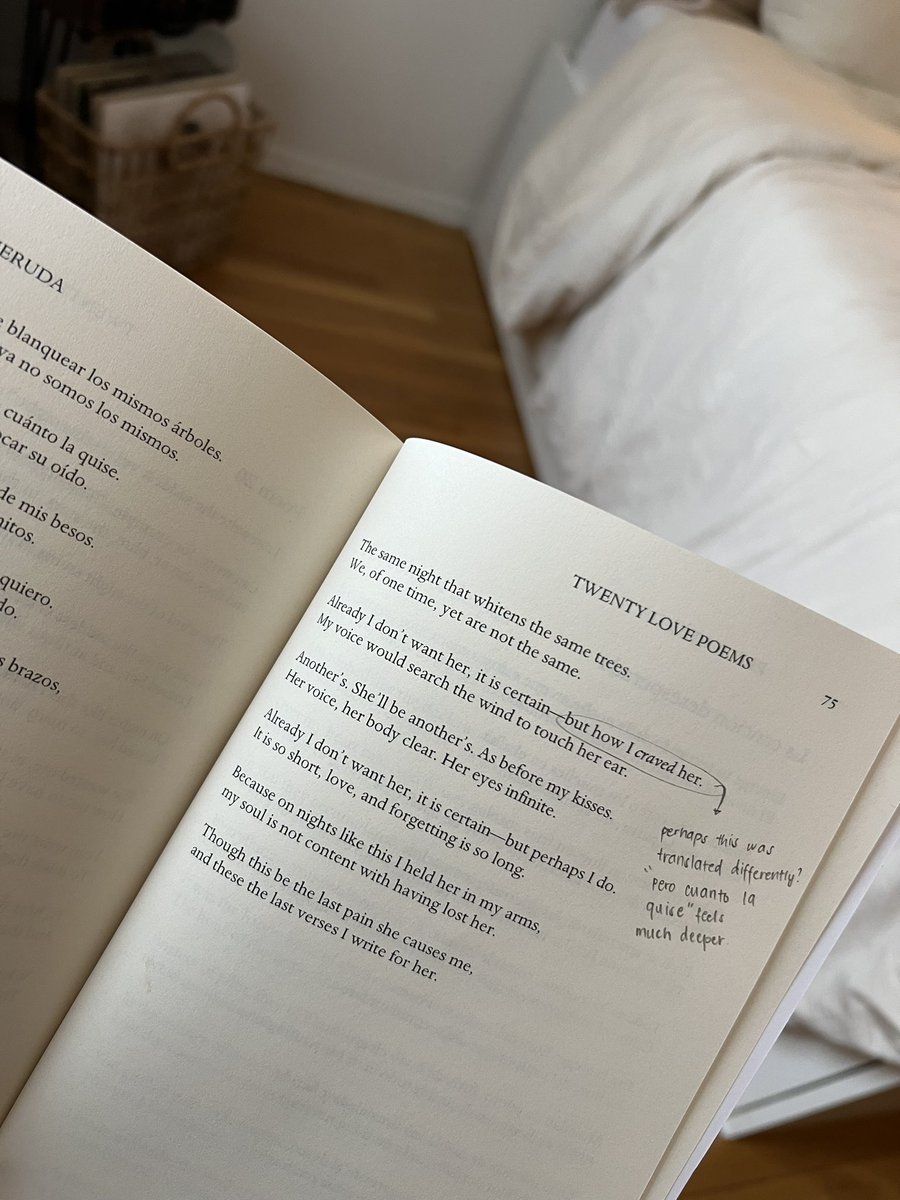 ERUDA
blanquear los mismos árboles.
ya no somos los mismos.
cuánto la quise.
ocar su oído.
de mis besos.
nitos.
quiero.
do.
s brazos,
TWENTY LOVE POEMS
75
The same night that whitens the same trees.
We, of one time, yet are not the same.
Already I don't want her, it is certain—but how I craved her.
My voice would search the wind to touch her ear.
Another's. She'll be another's. As before my kisses.
Her voice, her body clear. Her eyes infinite.
Already I don't want her, it is certain—but perhaps I do.
It is so short, love, and forgetting is so long.
Because on nights like this I held her in my arms,
my soul is not content with having lost her.
Though this be the last pain she causes me,
and these the last verses I write for her.
perhaps this was
translated differently?
"pero cuanto la
quise" feels
much deeper